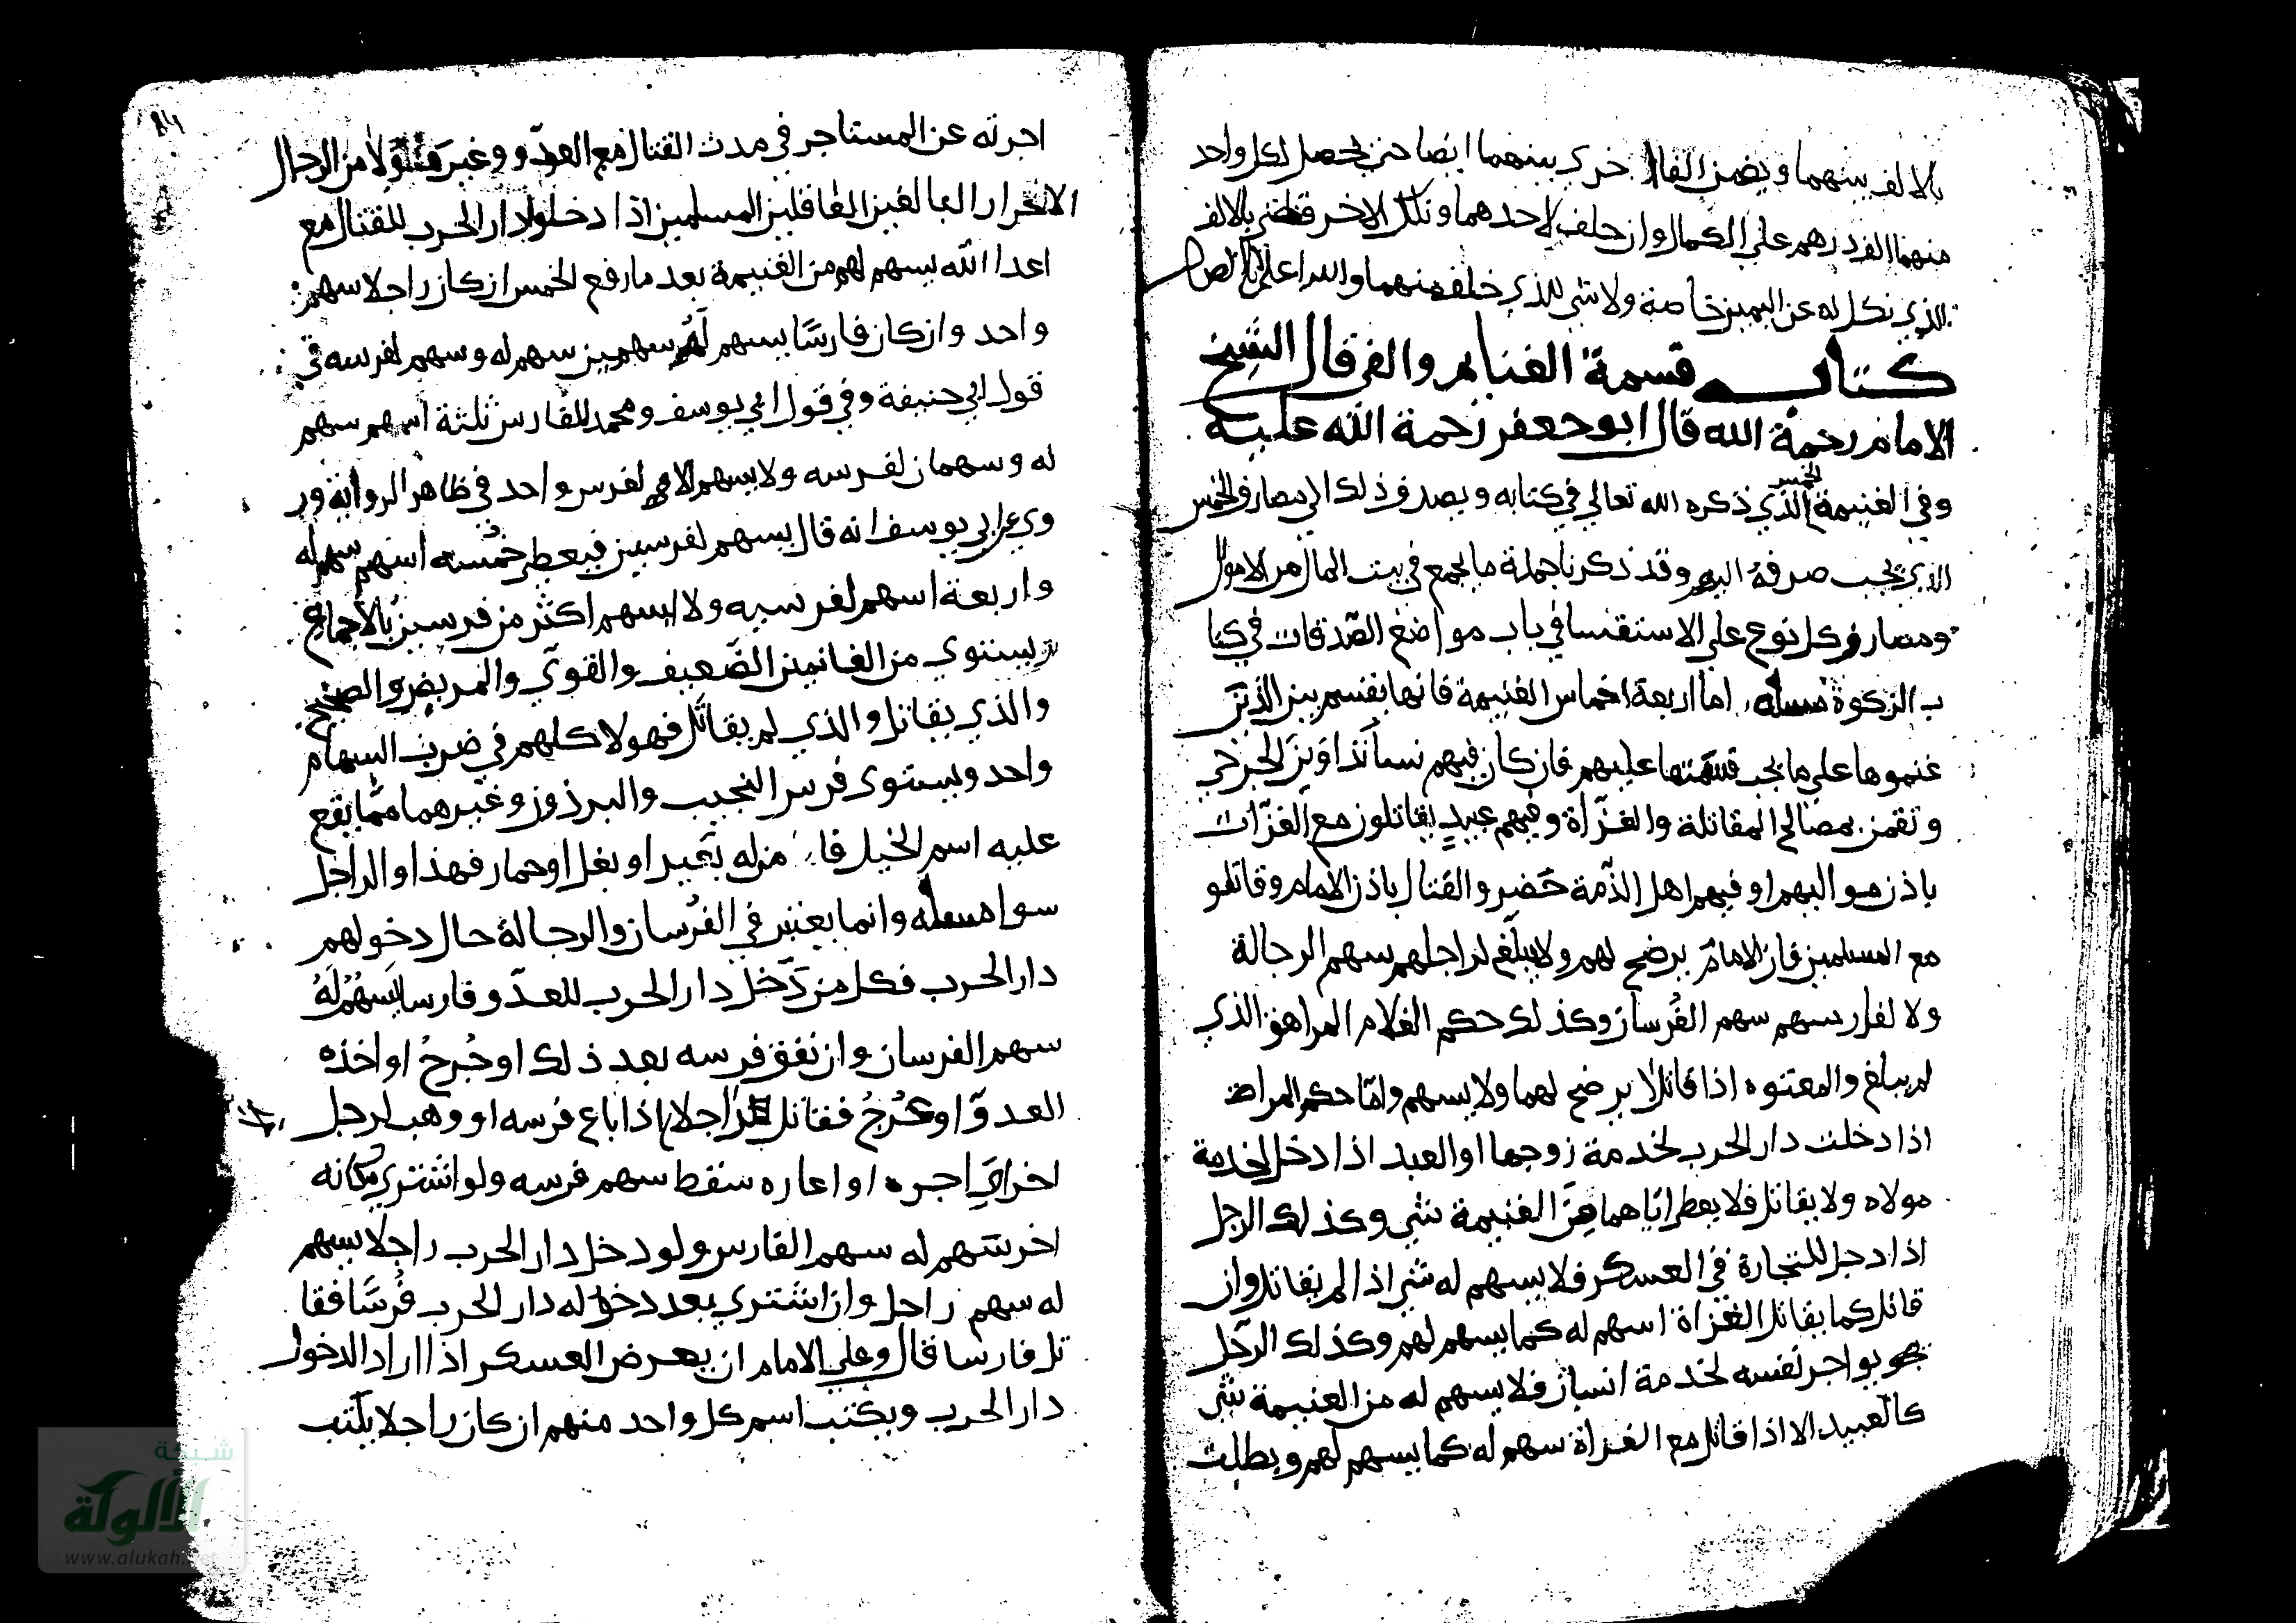 بالالف بينهما ويضمن الفا اخري بينهما ايضا حتي يحصل لكل واحد
منهما الف درهم علي الكمال وان حلف لاحدهما ونكل الاخر قضي بالالف
للذي نكل له عن اليمين خاصة ولا شي للذي حلف منهما والله اعلم بالصواب
كتاب قسمة الغنايم والفي قال الشيخ
الامام رحمة الله قال ابو جعفر رحمة الله عليه
وفي الغنيمة الخمس الذي ذكره الله تعالي في كتابه ويصرف ذلك الي مصارف الخمس
الذي يجب صرفه اليهم وقد ذكرنا جملة ما يجمع في بيت المال من الاموال
ومصارف كل نوع علي الاستقسا في باب مواضع الصدقات في كتا
ب الزكوة مسله اما اربعة اخماس الغنيمة فانها يقسم بين الذين
غنموها علي ما يجب قسمتها عليهم فان كان فيهم نسا تداوين الجرحي
وتقمن بمصالح المقاتلة والغزاة وفيهم عبيد يقاتلون مع الغزات
باذن مواليهم او فيهم اهل الذمة حضروا القتال باذن الامام وقاتلو
مع المسلمين فان الامام يرضح لهم ولا يبلغ لراجلهم سهم الرجالة
ولا لفارسهم سهم الفرسان وكذلك حكم الغلام المراهق الذي
لم يبلغ والمعتوه اذا قاتلا يرضح لهما ولا يسهم واما حكم المراة
اذا دخلت دار الحرب لخدمة زوجها او العبد اذا دخل لخدمة
مولاه ولا يقاتل فلا يعطي اياهما من الغنيمة شي وكذلك الرجل
اذا دخل للتجارة في العسكر فلا يسهم له شي اذا لم يقاتل وان
قاتل كما يقاتل الغزاة اسهم له كما يسهم لهم وكذلك الرجل
يواجر نفسه لخدمة انسان فلا يسهم له من الغنيمة شي
كالعبيد الا اذا قاتل مع الغزاة سهم له كما يسهم لهم وبطلت
اجرته عن المستاجر في مدت القتال مع العدو وغير من الرجال
الاحرار البالغين العاقلين المسلمين اذا دخلوا دار الحرب للقتال مع
اعدا الله يسهم لهم من الغنيمة بعد ما رفع الخمس ان كان راجلا سهم
واحد وان كان فارسا يسهم له سهمين سهم له وسهم لفرسه في
قول ابي حنيفة وفي قول ابي يوسف ومحمد للفارس ثلثة اسهم سهم
له وسهمان لفرسه ولا يسهم الا لفرس واحد في ظاهر الرواية ور
وي عن ابي يوسف انه قال يسهم لفرسين فيعطي خمسه اسهم سهم له
واربعة اسهم لفرسيه ولا يسهم اكثر من فرسين بالاجماع
يستوي من الغانمين الضعيف والقوي والمريض والصحيح
والذي يقاتل والذي لم يقاتل فهولا كلهم في ضرب السهام
واحد ويستوي فرس النجيب والبرذون وغيرهما مما يقع
عليه اسم الخيل فا من له بعير او بغل او حمار فهذا والراجل
سوا مسله وانما يعتبر في الفرسان والرجالة حال دخولهم
دار الحرب فكل من دخل دار الحرب للعدو فارسا يسهم له
سهم الفرسان وان نفق فرسه بعد ذلك او جرح او اخذه
العدو او عرج فقاتل راجلا اذا باع فرسه او وهب لرجل
اخر او اجره او اعاره سقط سهم فرسه ولو اشتري مكانه
اخر سهم له سهم الفارس ولو دخل دار الحرب راجلا يسهم
له سهم راجل وان اشتري بعد دخوله دار الحرب فرسا فقا
تل فارسا قال وعلي الامام ان يعرض العسكر اذا اراد الدخول
دار الحرب ويكتب اسم كل واحد منهم ان كان راجلا يكتب
شبكة
الألوكة
www.alukah.net